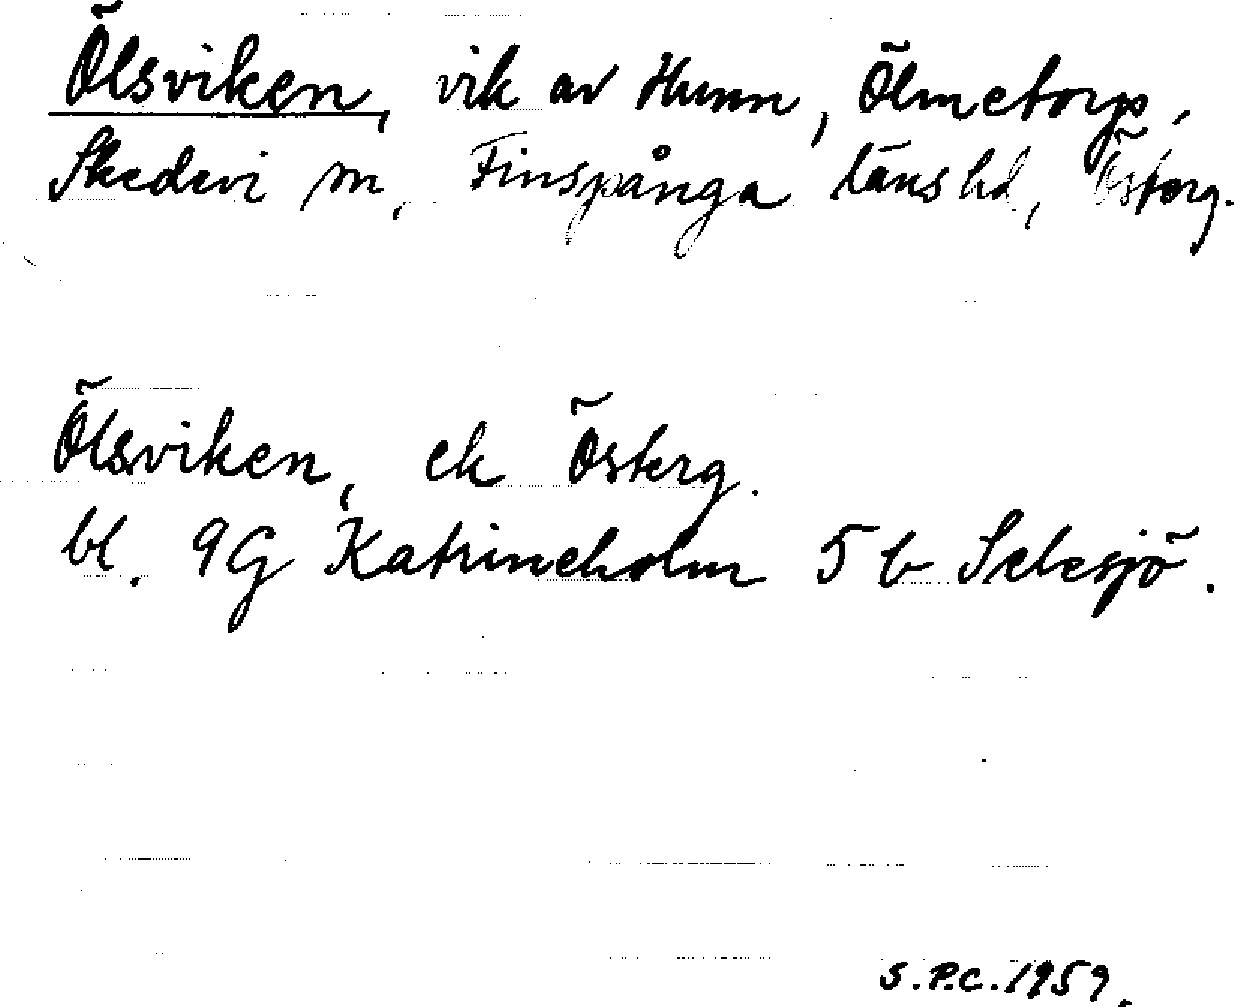 Ölsviken, vik av Hunn, Ölmetorp,
Skedevi sn, Finspånga läns hd, Österg.
Ölsviken, ek Österg.
bl. 9G Katrineholm 5 b Selesjö.
S.P.C. 1959.